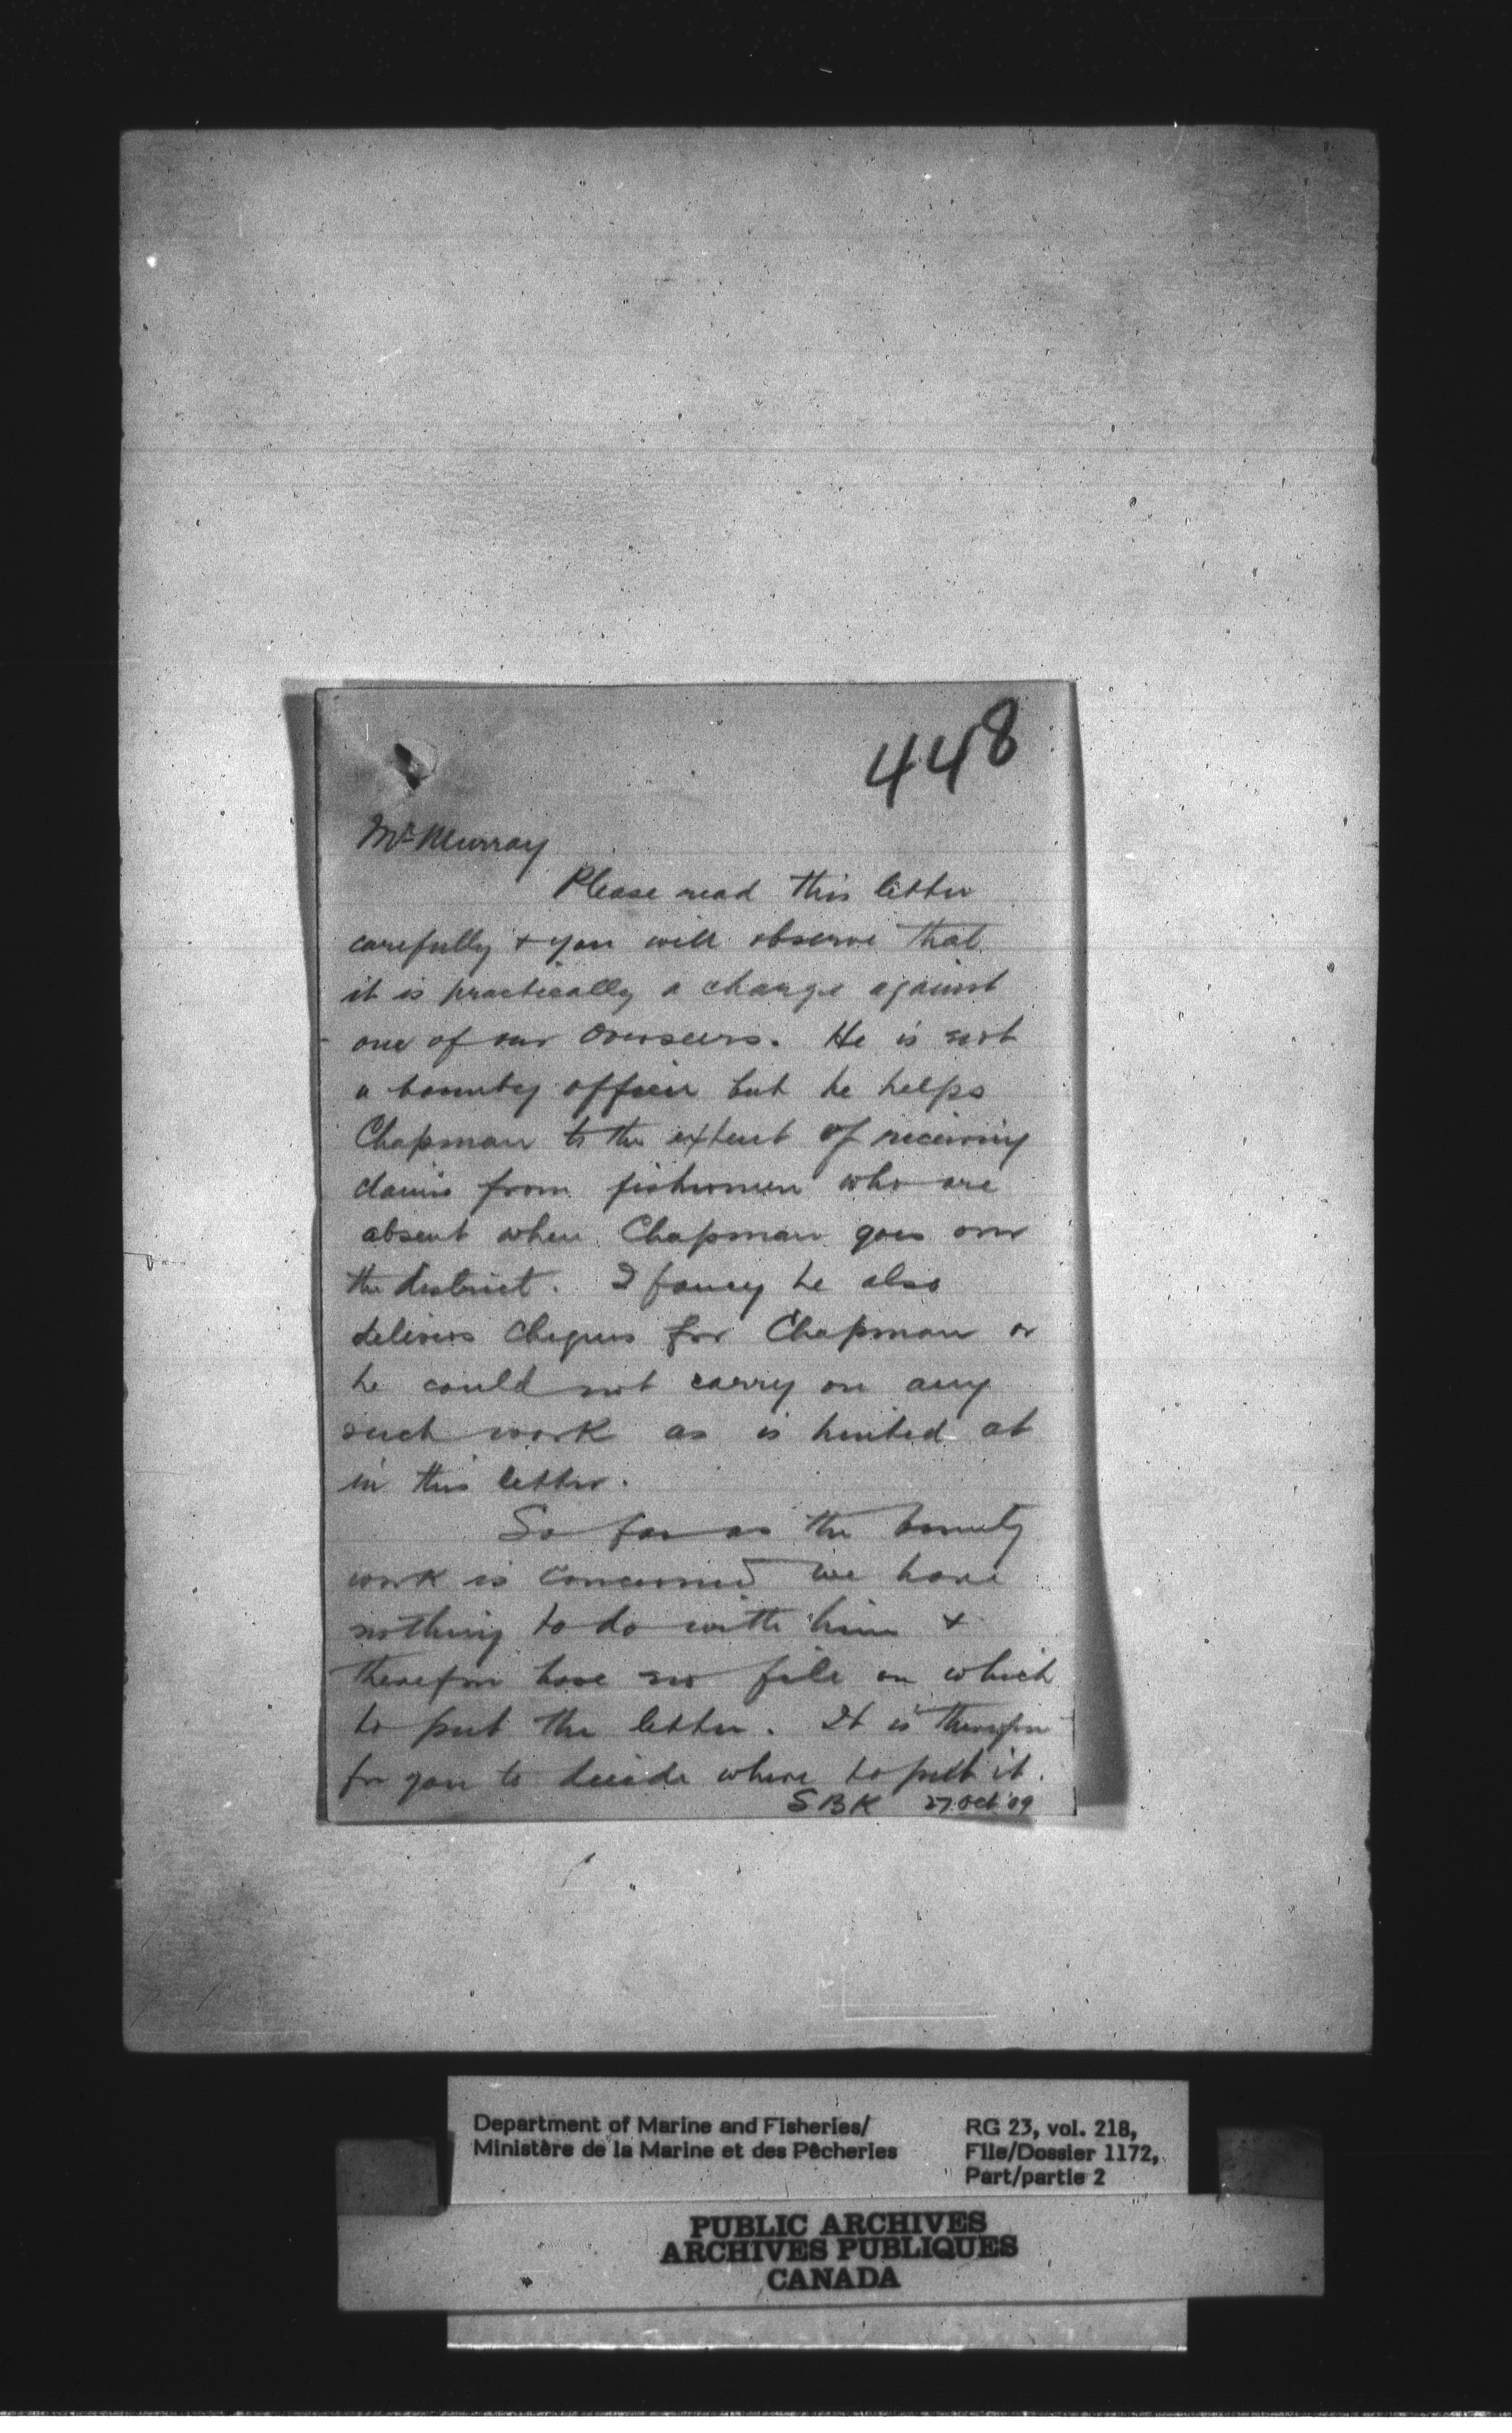 448
Mr Murray
Please read this letter
carefully & you will observe that
it is practically a charge against
one of our Overseers. He is not
a bounty officer but he helps
Chapman to the extent of receiving
claims from fishermen who are
absent when Chapman goes over
the district. I fancy he also
delivers cheques for Chapman or
he could not carry on any
such work as is hinted at
in this letter.
So far as the bounty
work is concerned we have
nothing to do with him &
therefore have no file on which
to put the letter. It is therefore
for you to decide where to put it.
SBK 27 Oct '09
Department of Marine and Fisheries/
Ministère de la Marine et des Pêcheries
RG 23, vol. 218,
File/Dossier 1172,
Part/partie 2
PUBLIC ARCHIVES
ARCHIVES PUBLIQUES
CANADA